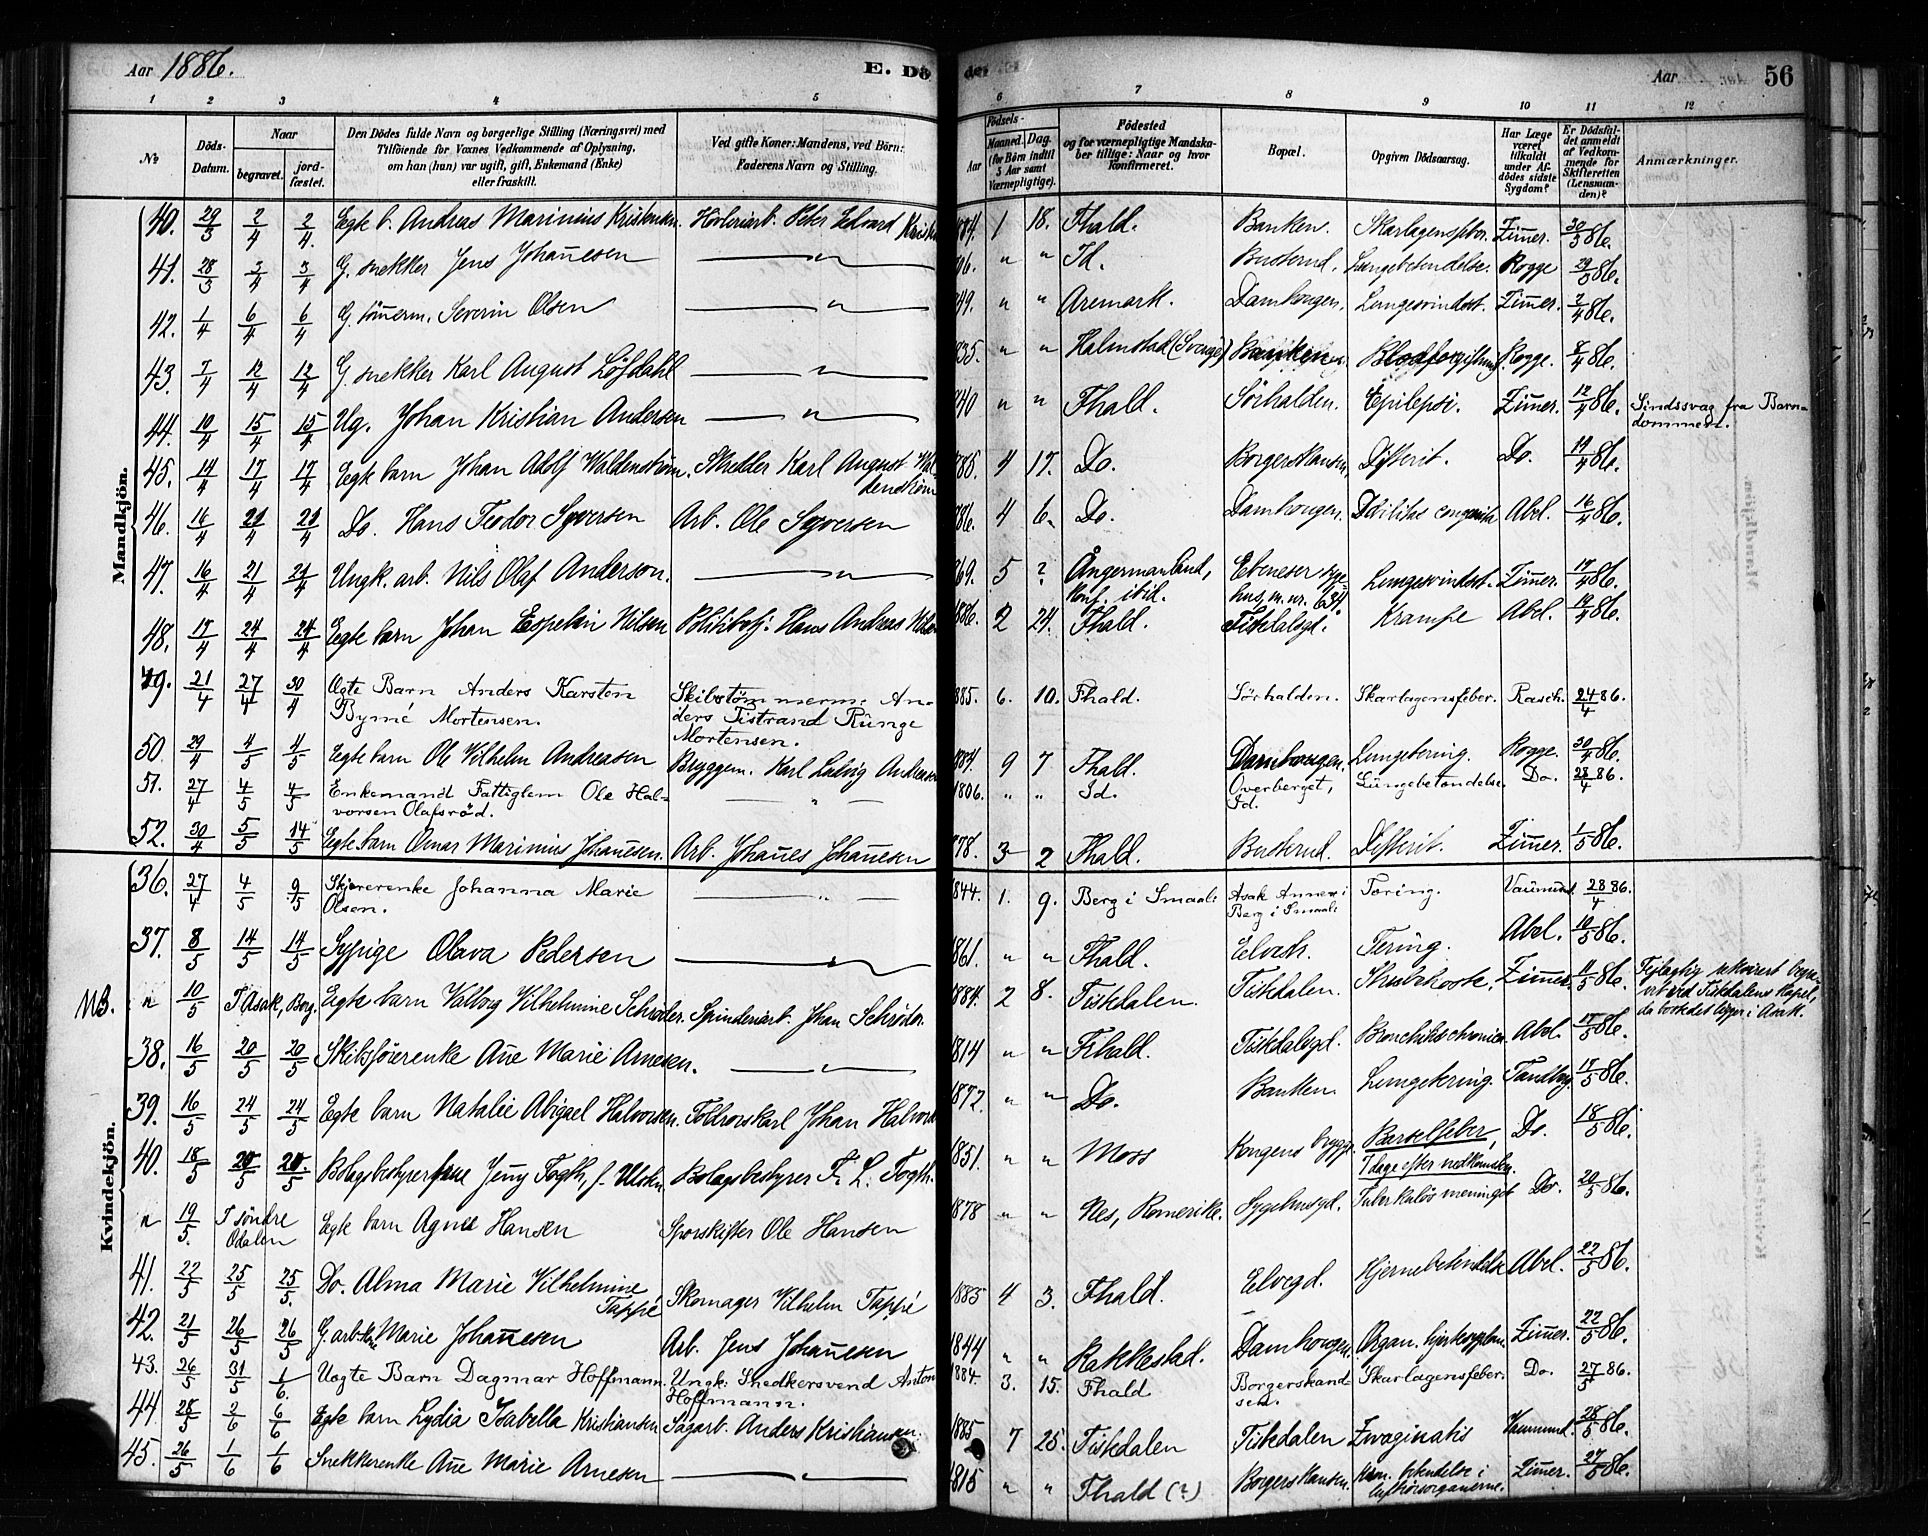 Aar 1886.
E. Dö
der
Aar
56
1 2 3 4 5
6 7 8 9 10 11 12
№
Döds-
Datum.
Naar
begravet.
jord-
fæstet.
Den Dödes fulde Navn og borgerlige Stilling (Næringsvei) med
Tilföiende for Voxnes Vedkommende af Oplysning,
om han (hun) var ugift, gift, Enkemand (Enke)
eller fraskilt.
Ved gifte Koner: Mandens, ved Börn:
Faderens Navn og Stilling.
Födsels-
Aar
Maaned. Dag.
(for Börn indtil
5 Aar samt
Værnepligtige).
Födested
og for værnepligtige Mandska-
ber tillige: Naar og hvor
konfirmeret.
Bopæl.
Opgiven Dödsaarsag.
Har Læge
været
tilkaldt
under Af-
dödes sidste
Sygdom?
Er Dödsfal-
det anmeldt
af Vedkom-
mende for
Skifteretten
(Lensman-
den)?
Anmærkninger.
Mandkjön.
40. 29/3 2/4 2/4. Egte b. Andreas Marinius Kristensen. Peter Edvard 884. 1 18. Fhald. Banken. Zimer. 30/3 86.
41. 28/3 3/4 3/4 G. snekker Jens Johannesen — " — " " Id. Buskrud. Lungebetendelse. Rogge 29/3 86.
42. 1/4 6/4 6/4 G. tömmerm. Severin Olsen — " — 49. " " Aremark. Damhougen. Lungesvindsot. Zimer. 2/4 86.
43. 7/4 12/4 12/4 G. snekker Karl August Löfdahl — " — 835. " " Halmstad (Sverige) Banken Blodforgiftning. Rogge. 8/4 86.
44. 10/4 15/4 15/4 Ug. Johan Kristian Andersen — " — 840 " " Fhald. Sörhalden. Epilepsi. Zimer. 12/4 86. Sindssvag fra Barn-
dommen.
45. 14/4 17/4 17/4 Egte barn Johan Adolf Waldenström. Skredder Karl August Wal-
denström 4 17. Do. Borgerskansen. Difterit. Do. 19/4 86.
46. 16/4 21/4 21/4 Do. Hans Teodor Syversen Arb. Ole Syversen 886. 4 6. Do. Damhougen. Debilitas congenita Abel. 16/4 86.
47. 16/4 21/4 21/4 Ungk. arb. Nils Olaf Anderson. — " — 869. 5 ? Ångermanland, Ebeneser Lungesvindsot. Zimer. 17/4 86.
Konf. ibid. m. nr. 634.
48. 17/4 24/4 24/4 Egte barn Johan Espelin Nilsen Politibetj. Hans Andreas Nilsen 1886. 2 24. Fhald. Tistedalsgd. Krampe Abel. 19/4 86.
49. 21/4 27/4 30/4 Ægte Barn Anders Karsten Skibstömmerm: An- 885. 6. 10. Fhald. Sörhalden. Skarlagensfeber. Rasch. 24/4 86.
Bymé Mortensen. ders Tistrand Runge
Mortensen.
50. 29/4 4/5 4/5 Egte barn Ole Vilhelm Andreasen Bryggem. Karl Ludvig Andreasen 1884. 9 7 Fhald. Damhougen. Lungetæring. Rogge. 30/4 86.
51. 27/4 4/5 4/5 Enkemand Fattiglem Ole Hal- — " — 1806. " " Id. Overberget, Lungebetændelse Do. 28/4 86.
vorsen Olafsröd. Id.
52. 30/4 5/5 14/5 Egte barn Omar Marinius Johannesen. Arb. Johannes Johannesen 878. 3 2 Fhald. Buskrud. Difterit. Zimer. 1/5 86.
Kvindekjön.
36. 27/4 4/5 9/5 Johanna Marie — " — 1844. 1. 9. Berg i Smaal: Asak Annex i Tæring. Vaumund. 28/4 86.
Olsen. Berg i Smaal:
37. 8/5 14/5 14/5 Sypige Olava Pedersen — " — 1861. " " Fhald. Elvesh. Tering. Abel. 10/5 86.
NB. " 10/5 I Asak, Berg. Egte barn Valborg Vilhelmine Schröder. Spinderiarb. Johan Schröder. 1884. 2 8. Tistdalen. Tistdalen. Strubehoste. Zimer. 11/5 86. Feilagtig
ved Tistdalens Kapel,
da ligger i Asak.
38. 16/5 20/5 20/5 Skibsförerenke Ane Marie Arnesen. — " — 1814 " " Frhald. Tistdalsgd. Abel. 17/5 86.
39. 16/5 24/5 24/5 Egte barn Natalie Abigael Halvorsen. Toldrorskarl Johan Halvorsen 1872. " " Do. Banken. Lungetering. Tandberg 17/5 86.
40. 18/5 25/5 25/5 Bolagsbestyrerfrue Jenny Fogth, f. Bolagsbestyrer F. L. Fogth. 1851. " " Moss Kongens brygge. Barselfeber, Do. 18/5 86.
7 dage efter nedkomsten.
" 19/5. I söndre Egte barn Agnes Hansen Sporskifter Ole Hansen 1878 " " Nes, Romerike. Sygehusgd. Tuberkulös meningit Do. 20/5 86.
Odalen
41. 22/5 25/5 25/5. Do. Alma Marie Vilhelmine Skomager Vilhelm Tappé 1883 4 3. Fhald. Elvegd. Hjernebetendelse Abel. 22/5 86.
Tappé
42. 21/5 26/5 26/5 G. arb. Marie Johannesen Arb. Jens Johannesen 1844 " " Rakkestad. Damhougen. Organ. Zimer. 22/5 86.
43. 26/5 31/5 1/6. Uegte Barn Dagmar Hoffmann. Ungk: Snedkersvend Anton 1884. 3. 15. Fhald Borgerskand- Skarlagensfeber. Do. 27/5 86.
Hoffmann. sen.
44. 28/5 2/6 6/6 Egte barn Lydia Isabella Kristiansen Sagarb. Anders Kristiansen. 1885 7 25. Tistdalen Tistedalen Vaumund. 28/5 86.
45. 26/5 1/6 1/6 Snekkerenke Ane Marie Arnesen — " — 1815 " " Fhald (?) Borgerskansen. Kron. betendelse i Zimer. 27/5 86.